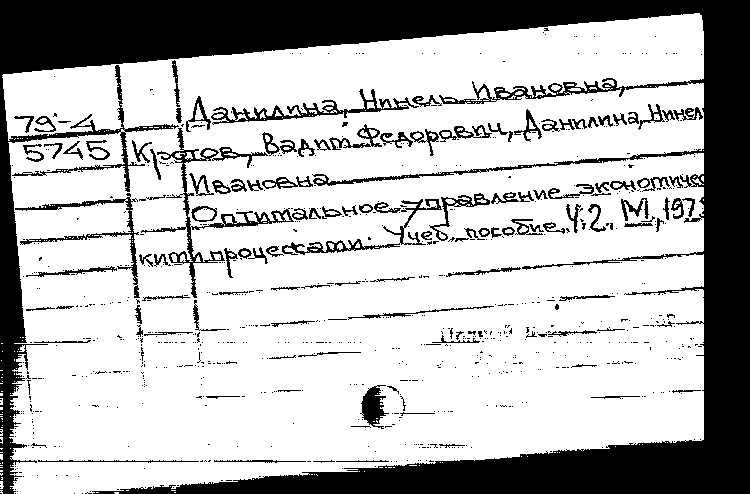 Данилина, Нинель Ивановна,
79-4
5745 Кротов, Вадим Федорович, Данилина, Нинель
Ивановна
Оптимальное управление экономичес
кими процессами. Учеб. пособие. Ч.2. М.,